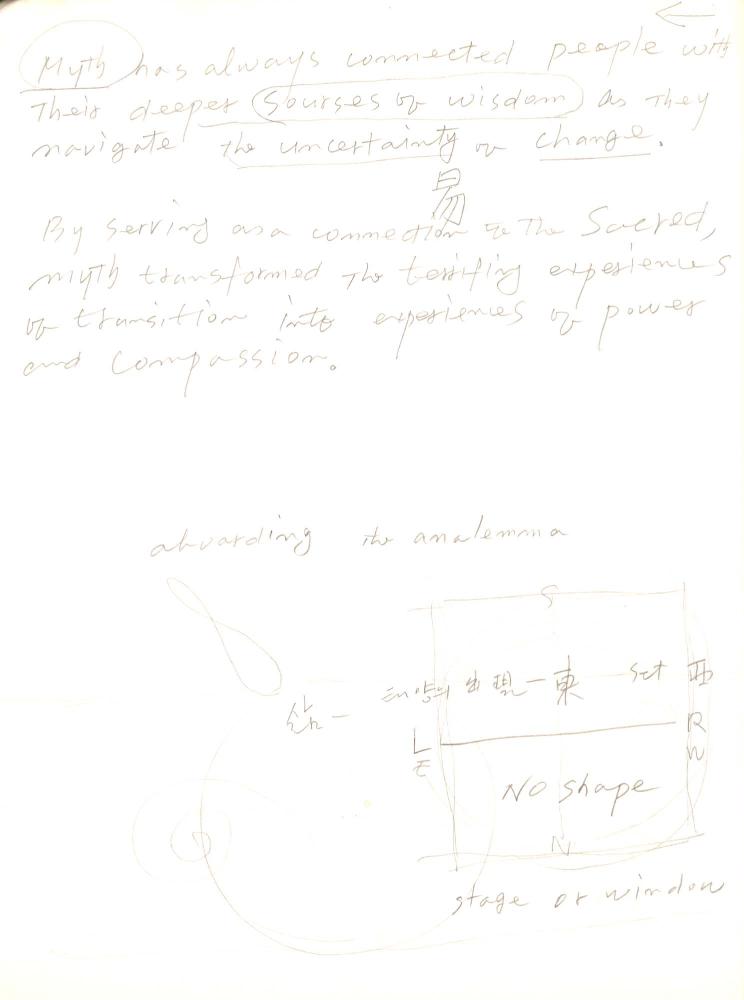 Myth has always connected people with
Their deeper sourses of wisdom as They
navigate the uncertainty of change.
易
By serving as a connection to The Sacred,
myth transformed The terrifing experiences
of transition into experiences of power
and compassion.
the analemma
S
태양의 出現 一 東 Set 西
L R
E W
No shape
N
stage or window